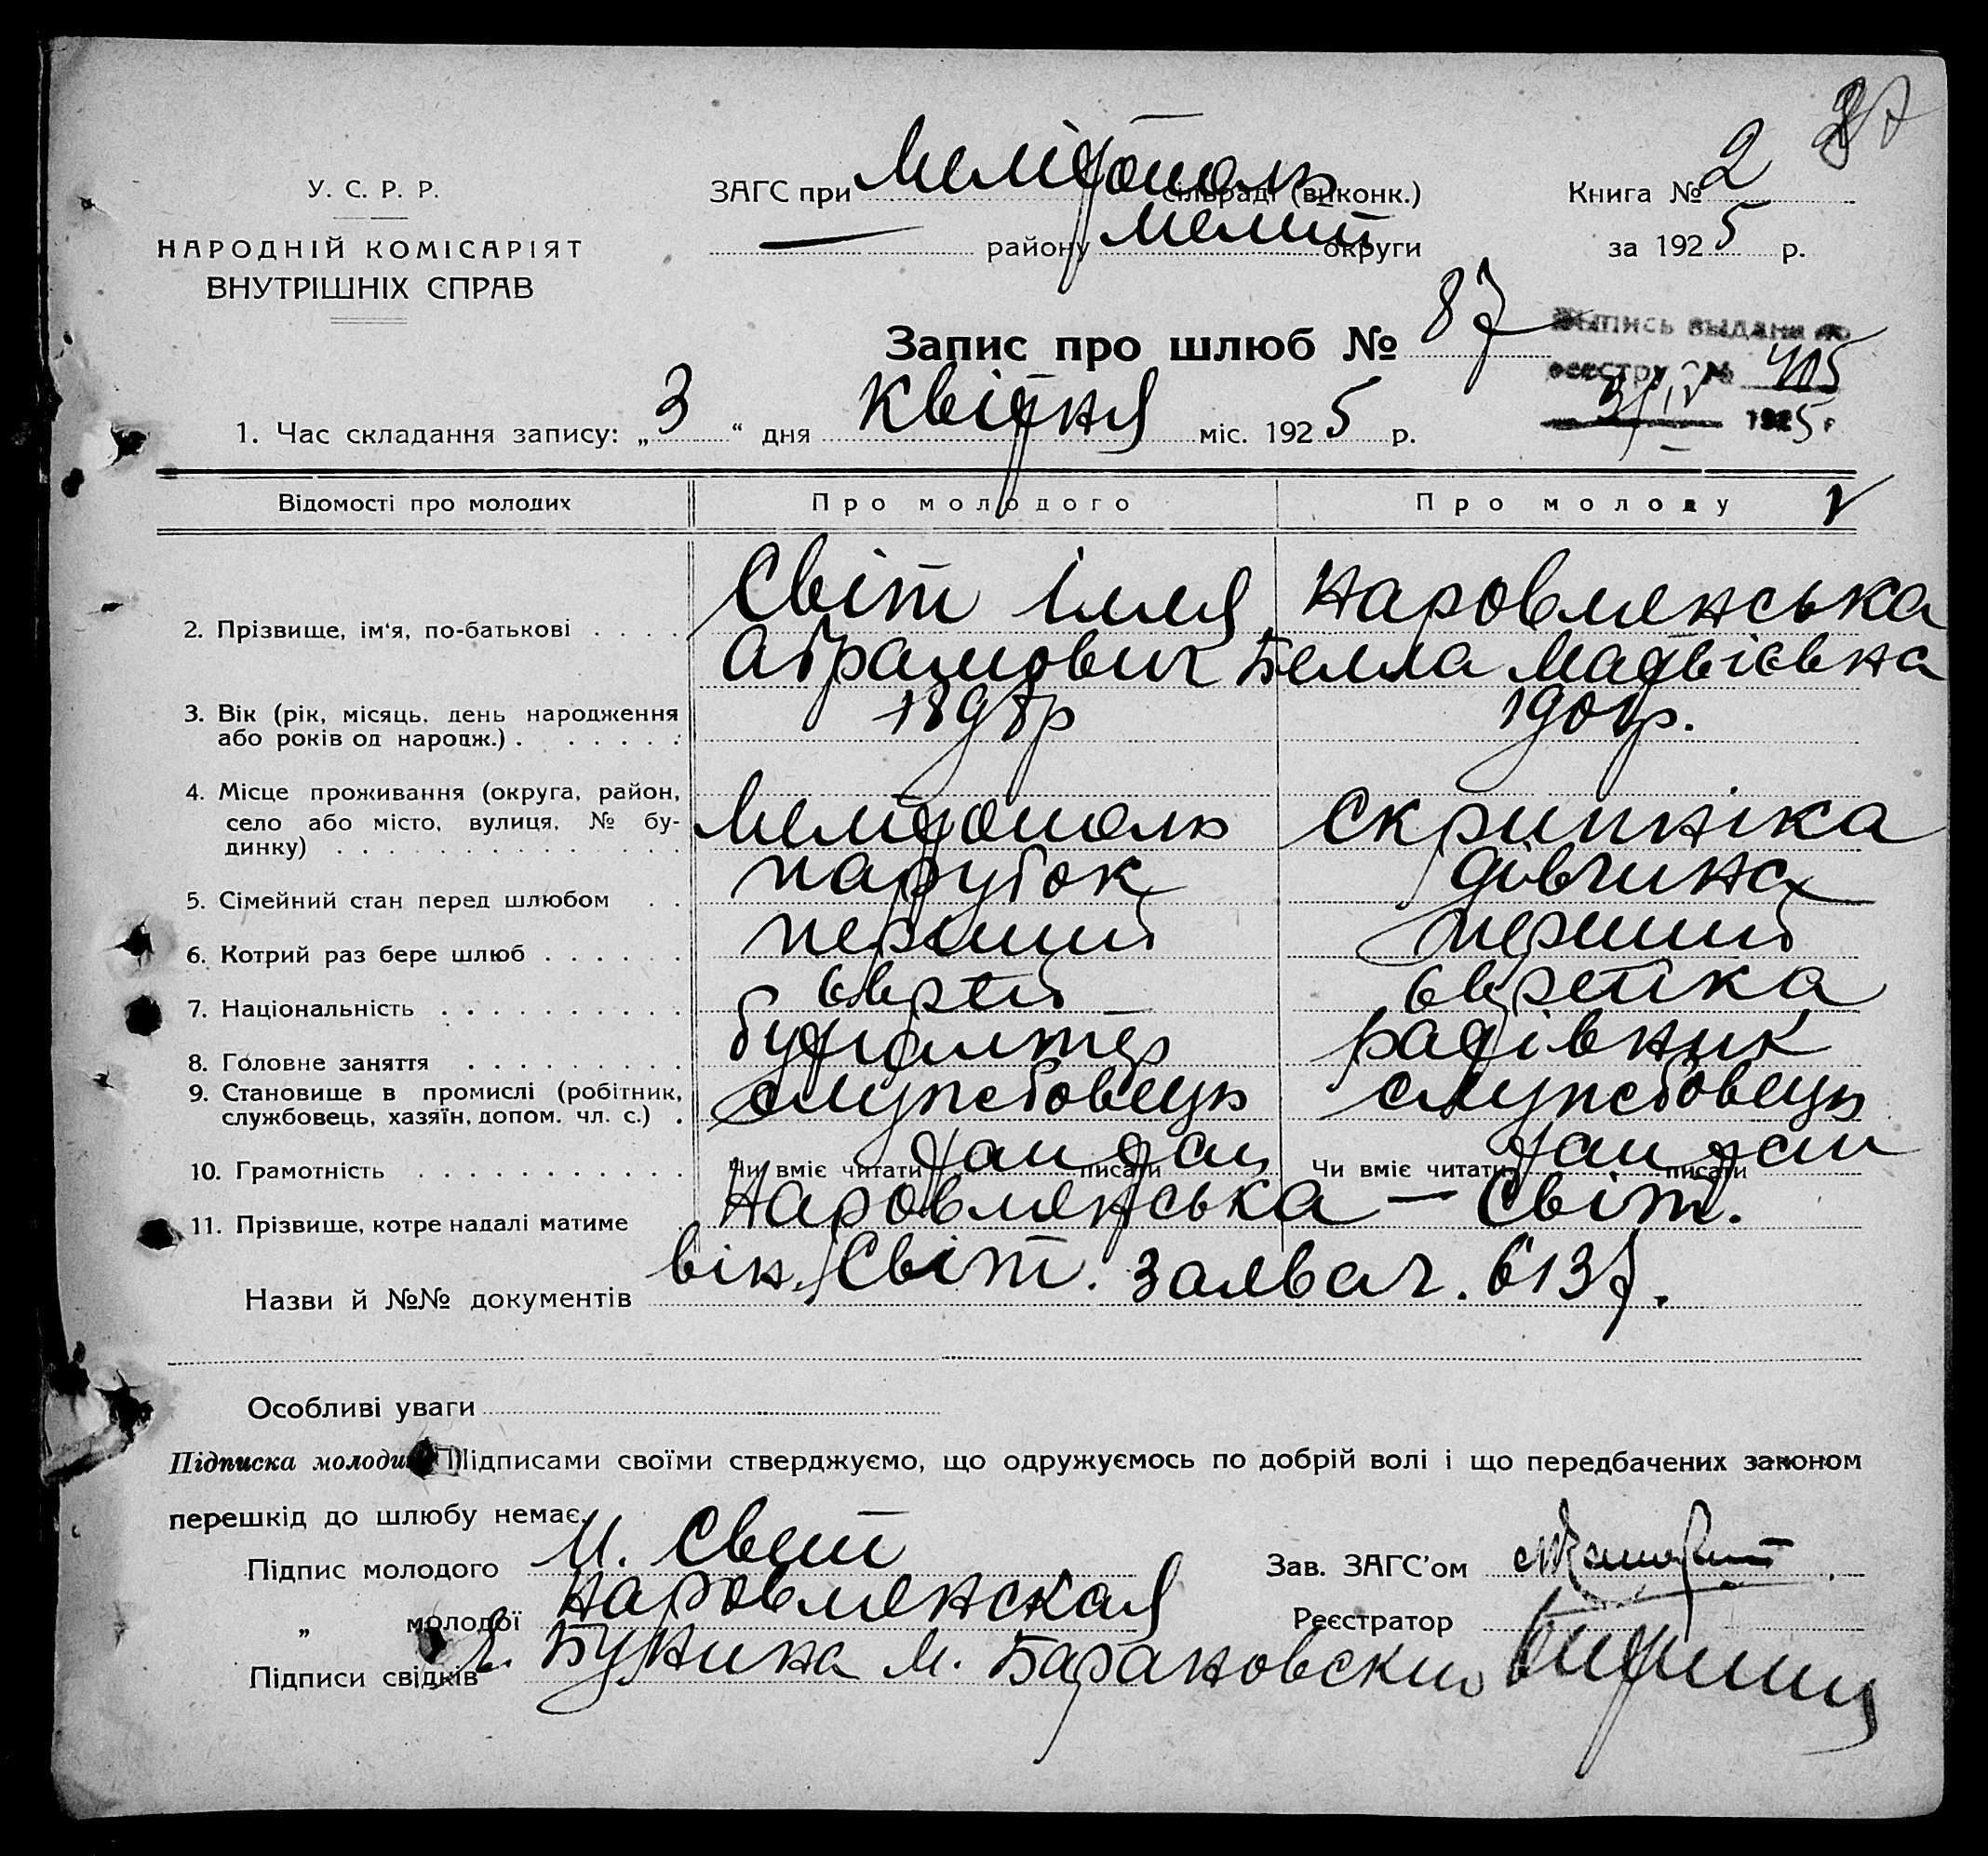 У. С. Р. Р.
НАРОДНІЙ КОМІСАРІЯТ
ВНУТРІШНІХ СПРАВ
ЗАГС при Мелітополь сільраді (виконк.)
району Меліт округи
Книга № 2
за 1925 р.
Запис про шлюб № 87
Выпись выдана по
реестру № 405
1925 г
1. Час складання запису: „3“ дня Квітня міс. 1925 р.
Відомості про молодих Про молодого Про молоду
2. Прізвище, ім'я, по-батькові Світ Ілля Абрамович Наровлянська Белла Матвієвна
3. Вік (рік, місяць, день народження
або років од народж.) 1898р 1901р.
4. Місце проживання (округа, район,
село або місто, вулиця, № бу-
динку) Мелітополь Скрипніка
5. Сімейний стан перед шлюбом парубок дівчина
6. Котрий раз бере шлюб перший перший
7. Національність єврей єврейка
8. Головне заняття бухгалтер
9. Становище в промислі (робітник,
службовець, хазяїн, допом. чл. с.) службовець службовець
10. Грамотність Чи вміє читати так писати так Чи вміє читати так писати так
11. Прізвище, котре надалі матиме Наровлянська — Світ.
він, Світ.
Назви й №№ документів 6137.
Особливі уваги
Підписка молодих Підписами своїми стверджуємо, що одружуємось по добрій волі і що передбачених законом
перешкід до шлюбу немає.
Підпис молодого И. Свет
„ молодої Наровлянская
Підписи свідків Бунина М. Барановский
Зав. ЗАГС'ом
Реєстратор